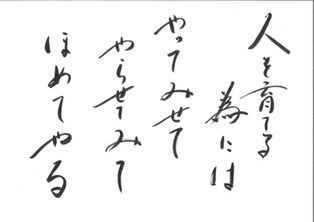 人を育てる
為には
やってみせて
やらせてみて
ほめてやる